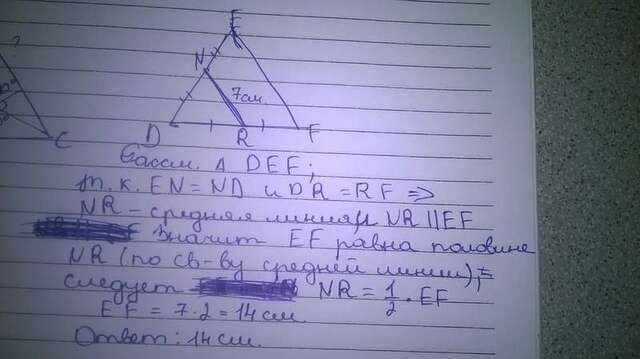 E
N
7см.
D
R
F
C
Рассм. Δ DEF;
т.к. EN = ND и DR = RF ⇒
NR – средняя линия, NR || EF
Значит EF равна половине
NR (по св-ву средней линии),
следует NR = 1/2 · EF
EF = 7·2 = 14 см.
Ответ: 14 см.